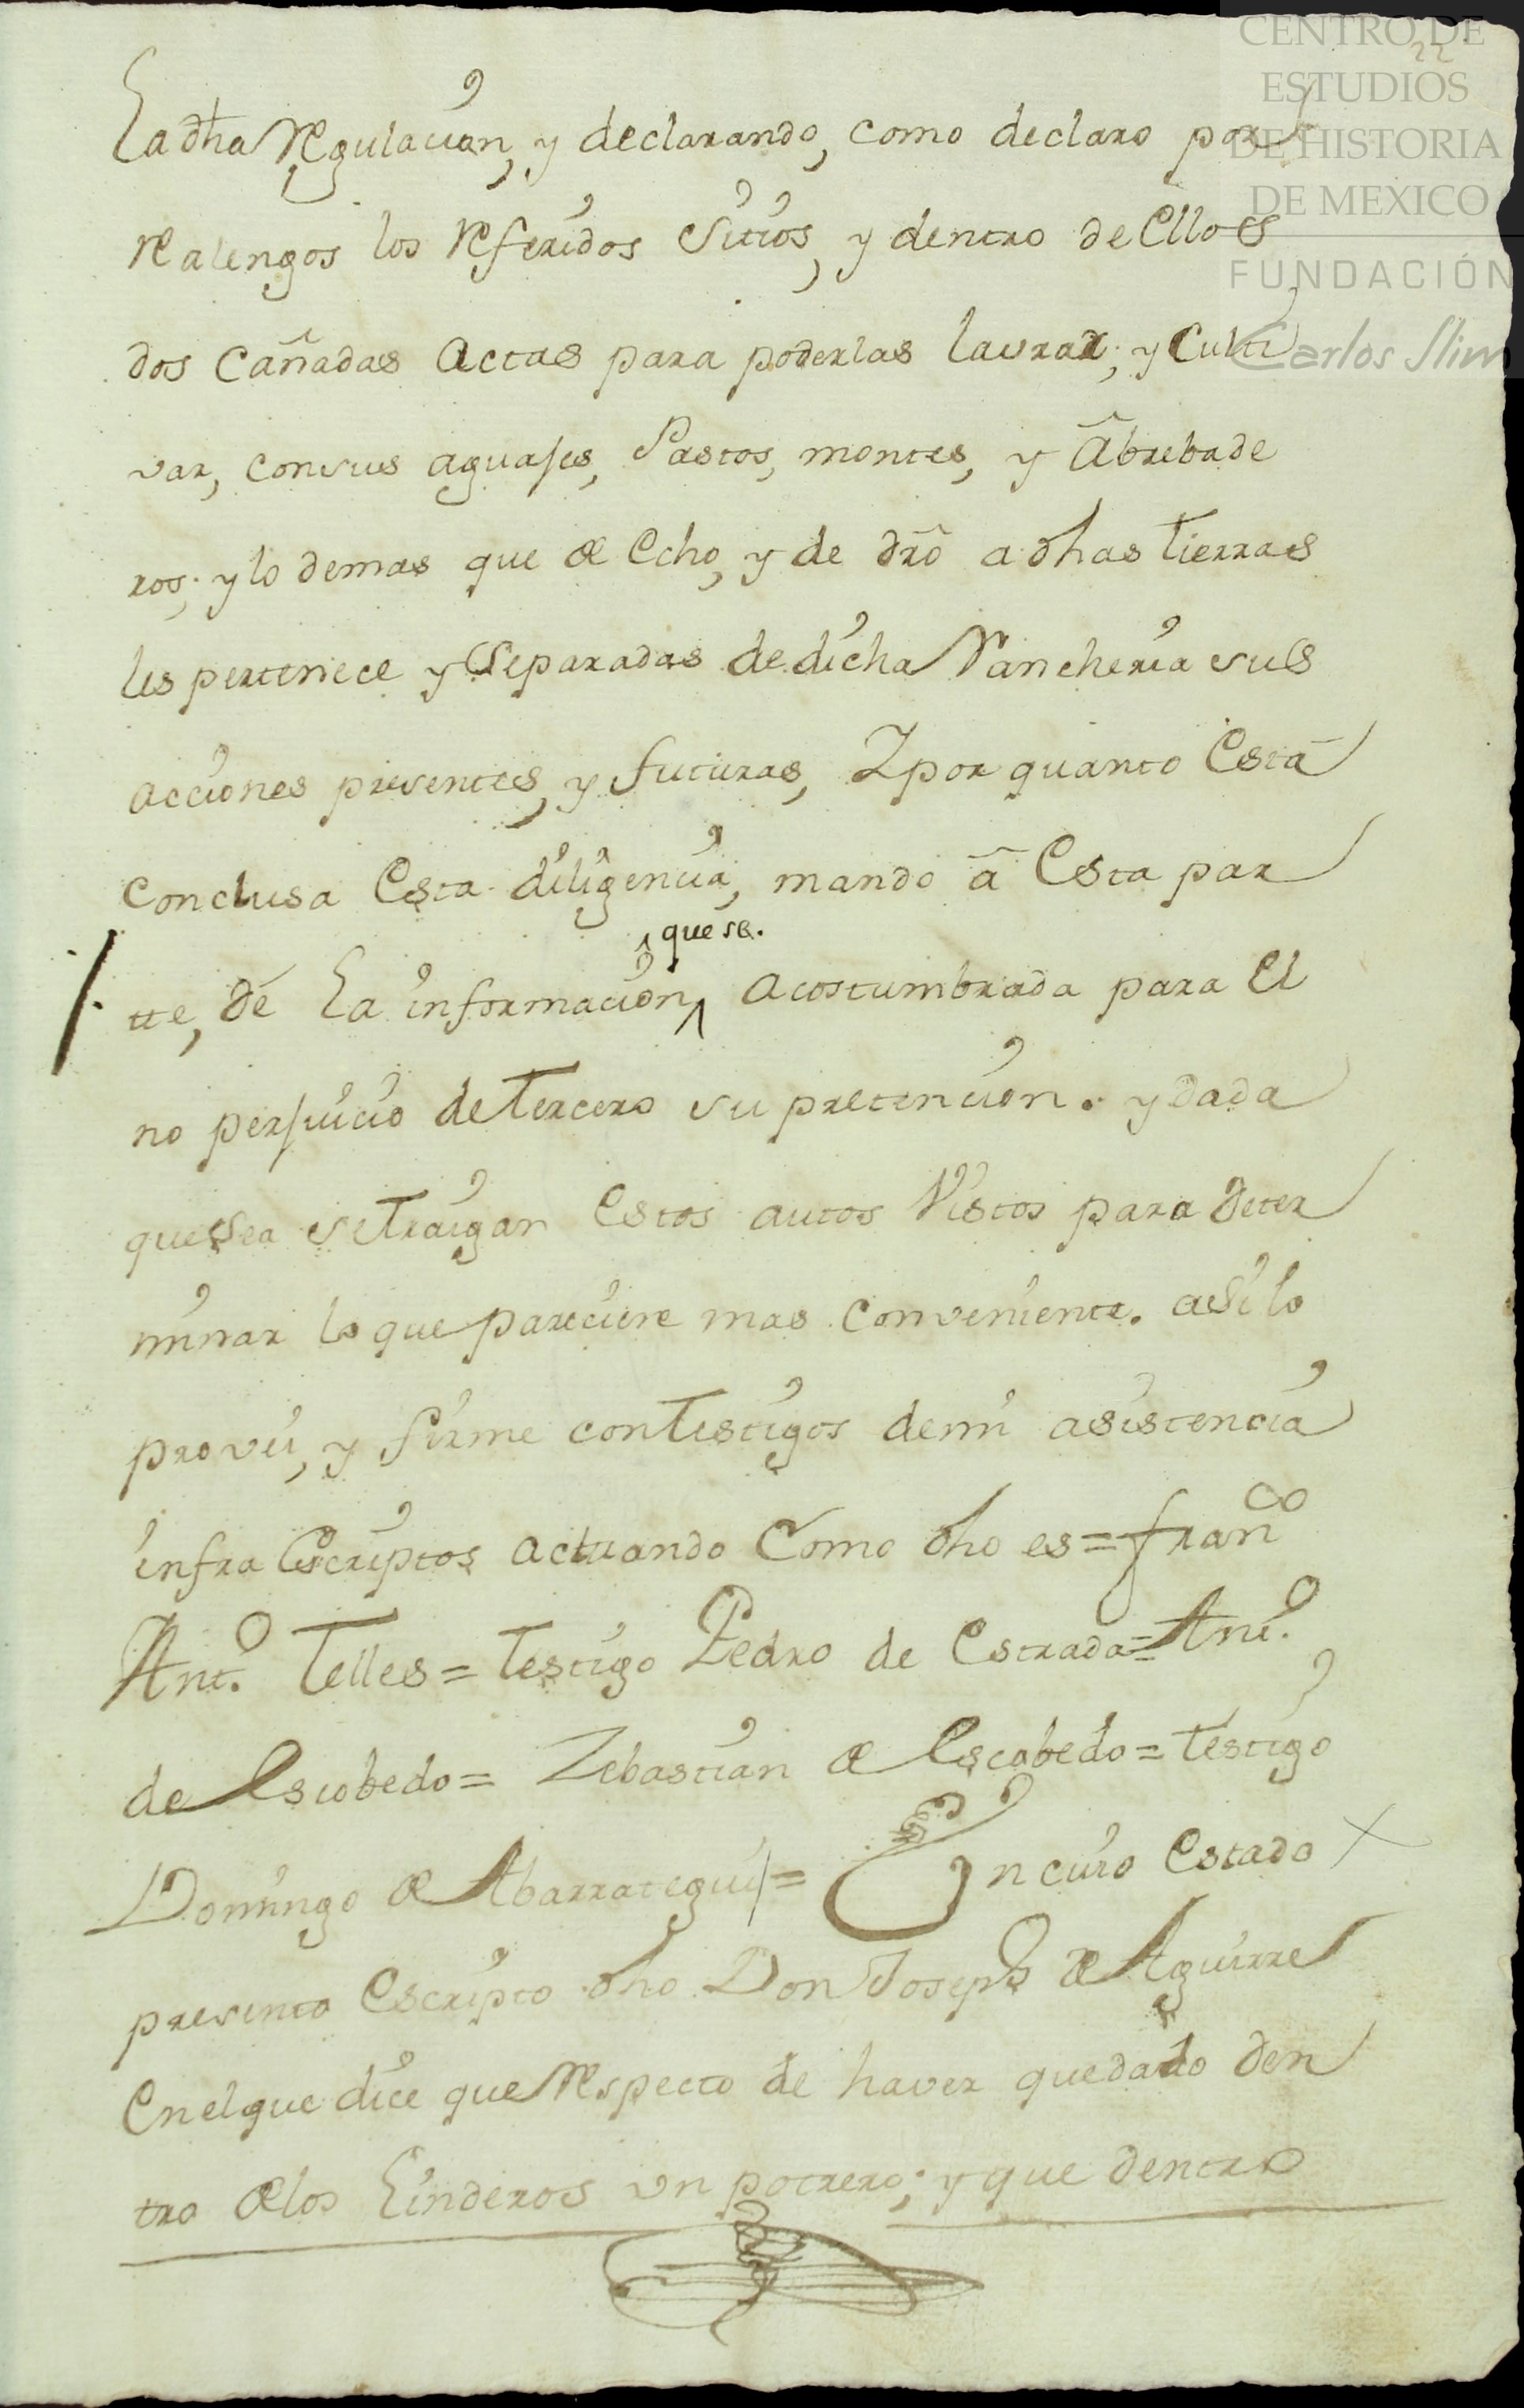 CENTRO DE
ESTUDIOS
DE HISTORIA
DE MEXICO
FUNDACIÓN
Carlos Slim
22
La dha Regulacion, y declarando, como declaro por
Realengos los Referidos Sitios, y dentro de Ellos
dos Cañadas Actas para poderlas lavrar; y Culti
var, con sus aguajes, Pastos, montes, y Abrebade
ros; y lo demas que de Echo, y de dro a dhas tierras
les pertenece y Separadas de dicha Rancheria sus
acciones presentes, y futuras, Y por quanto Está
Conclusa Esta diligencia, mando â Esta par
que se.
tte, dé La informacion, Acostumbrada para El
no perjuicio de Tercero su pretencion. y dada
que sea se Traigan Estos autos Vistos para deter
minar lo que pareciere mas conveniente. asi lo
proveí, y firme con Testigos de mi asistencia
infra Escriptos Actuando Como dho es = Franco
Anto. Telles = Testigo Pedro de Estrada = Anto.
de Escobedo = Zebastian de Escobedo = Testigo
Domingo de Abarrategui = En cuio Estado
presento Escripto dho Don Joseph de Aguirre
En el que dice que Respecto de haver quedado den
tro de los Linderos un potrero; y que dentro